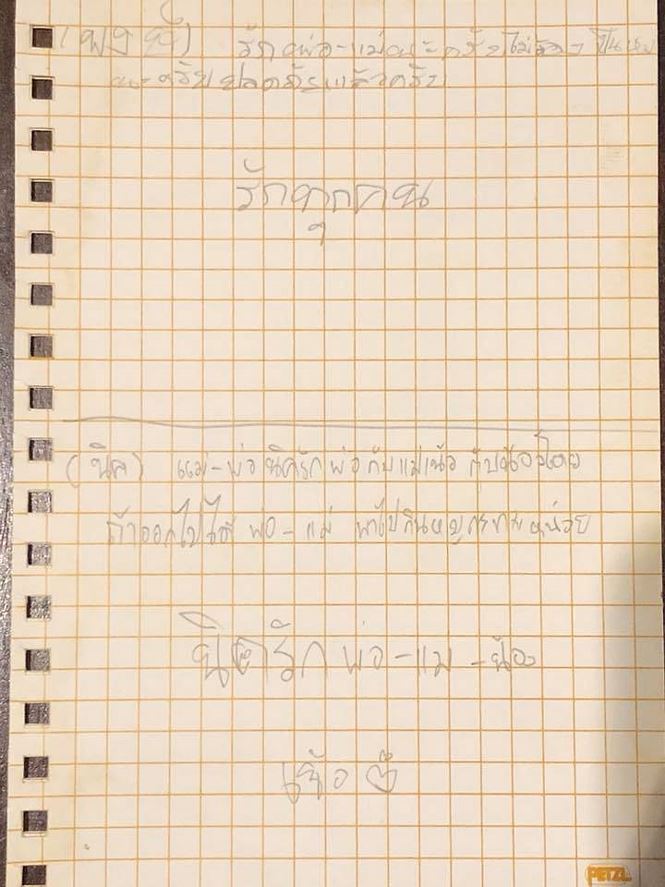 (พงษ์) รักพ่อ-แม่นะครับไม่ต้องเป็นห่วง
นะครับปลอดภัยแล้วครับ
รักทุกคน
(นิค) แม่-พ่อนิครักพ่อกับแม่แน้ว กับน้องด้วย
ถ้าออกไปได้ พ่อ-แม่ พาไปกินหมูกระทะหน่อย
นิครักพ่อ-แม่-น้อง
PETZL